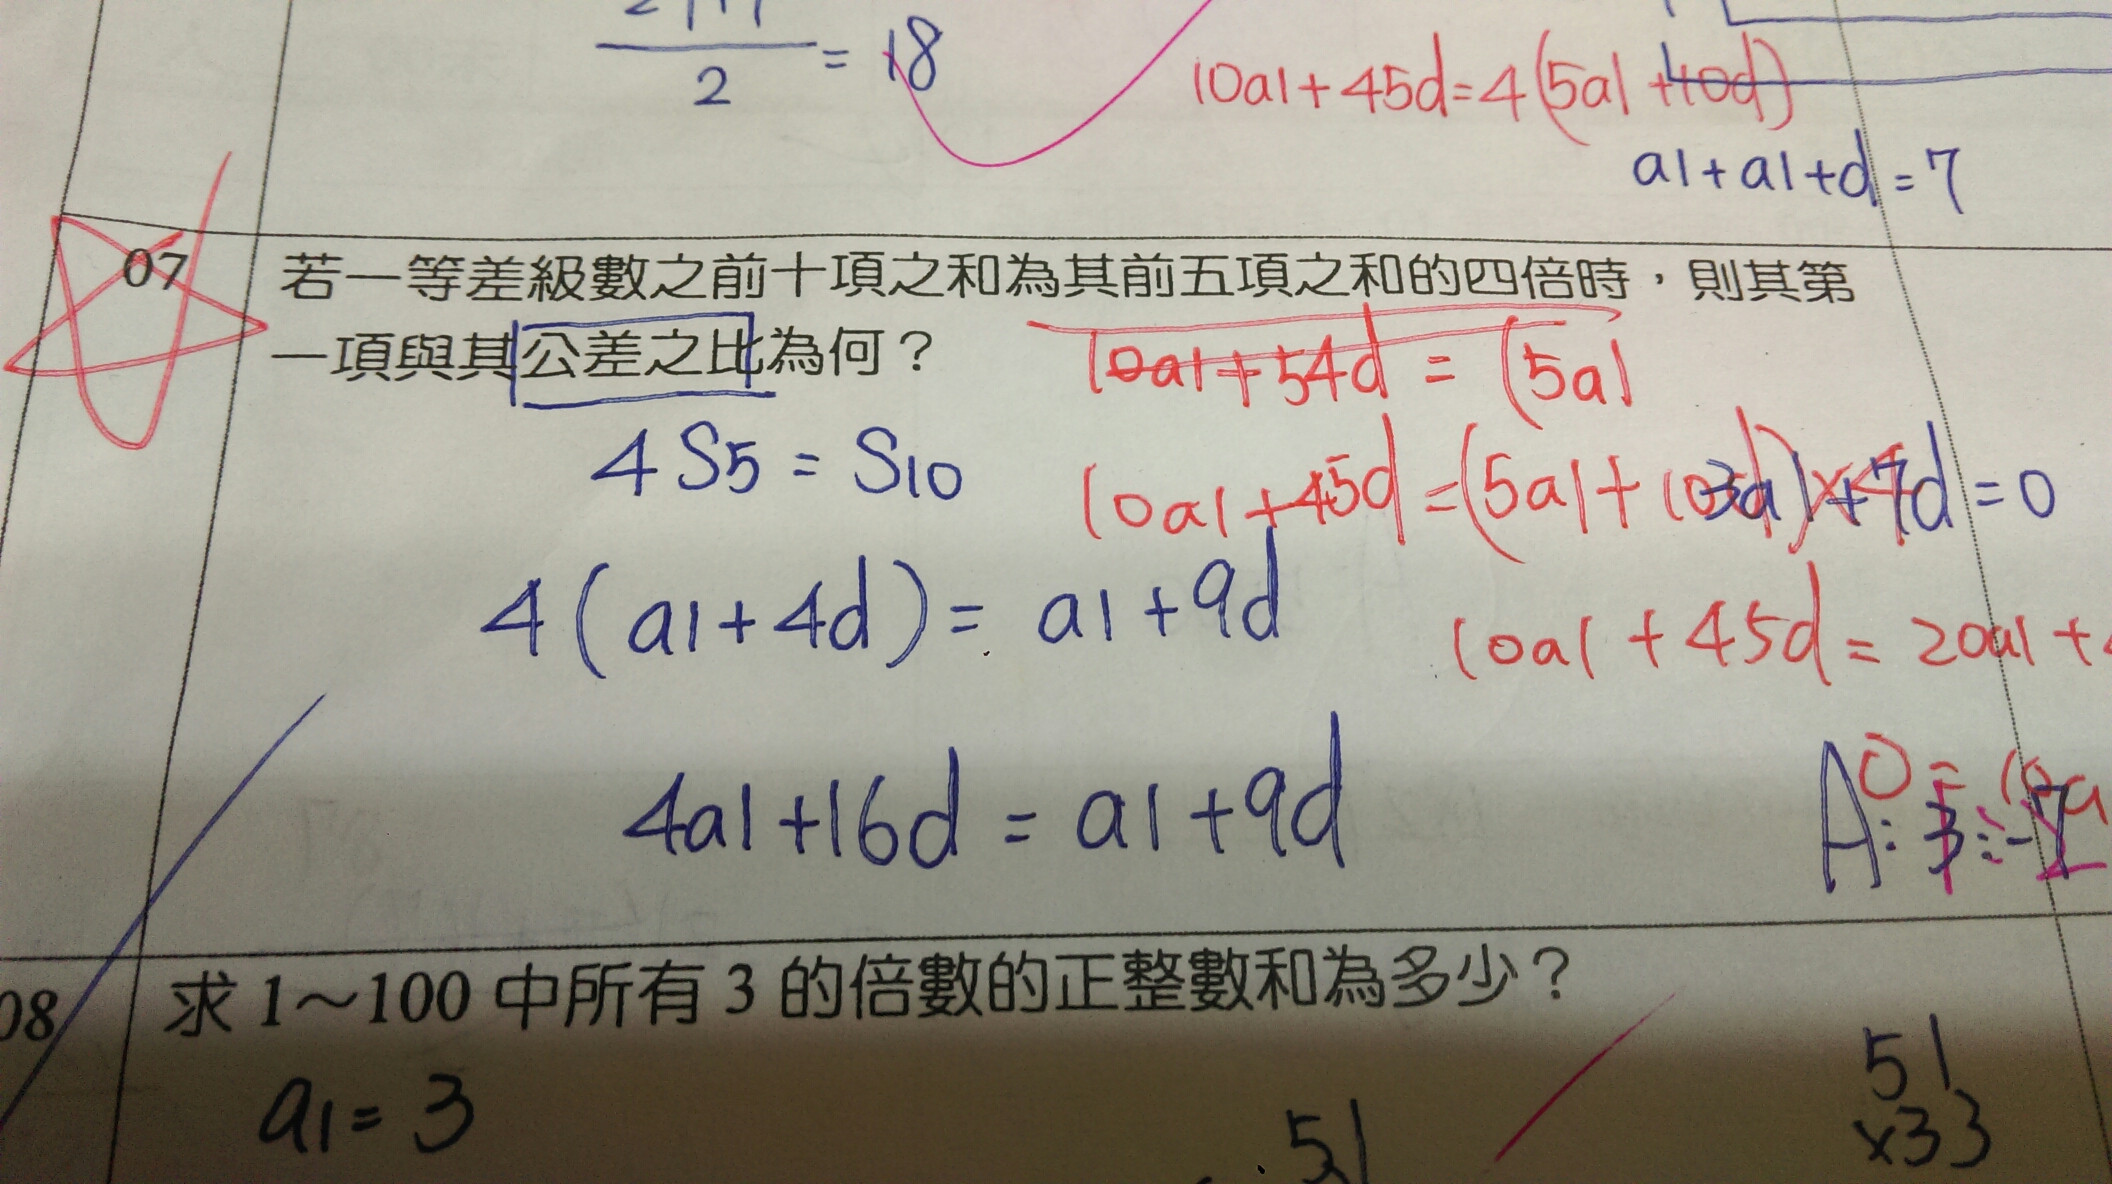 2 = 18
10a1+45d=4(5a1+10d)
a1+a1+d=7
07 若一等差級數之前十項之和為其前五項之和的四倍時，則其第
一項與其公差之比為何？
10a1+54d = (5a1
4S5 = S10
10a1+45d=(5a1+10d)×4
+7d=0
4(a1+4d)= a1+9d
10a1+45d=20a1+
4a1+16d = a1+9d
A: 3:-7
08 求 1～100 中所有 3 的倍數的正整數和為多少？
a1= 3
51
51
×33